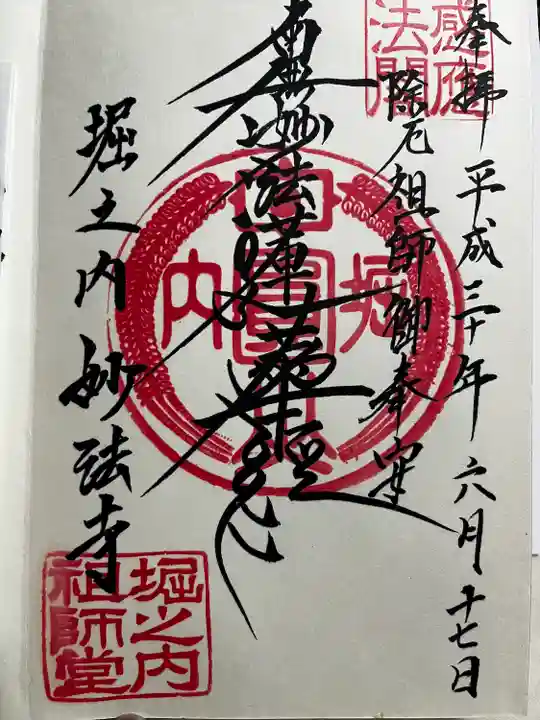 感應
奉拝 平成三十年六月十七日
除厄祖師御奉安
南無妙法蓮華經
堀 内
堀之内 妙法寺
堀之内
祖師堂